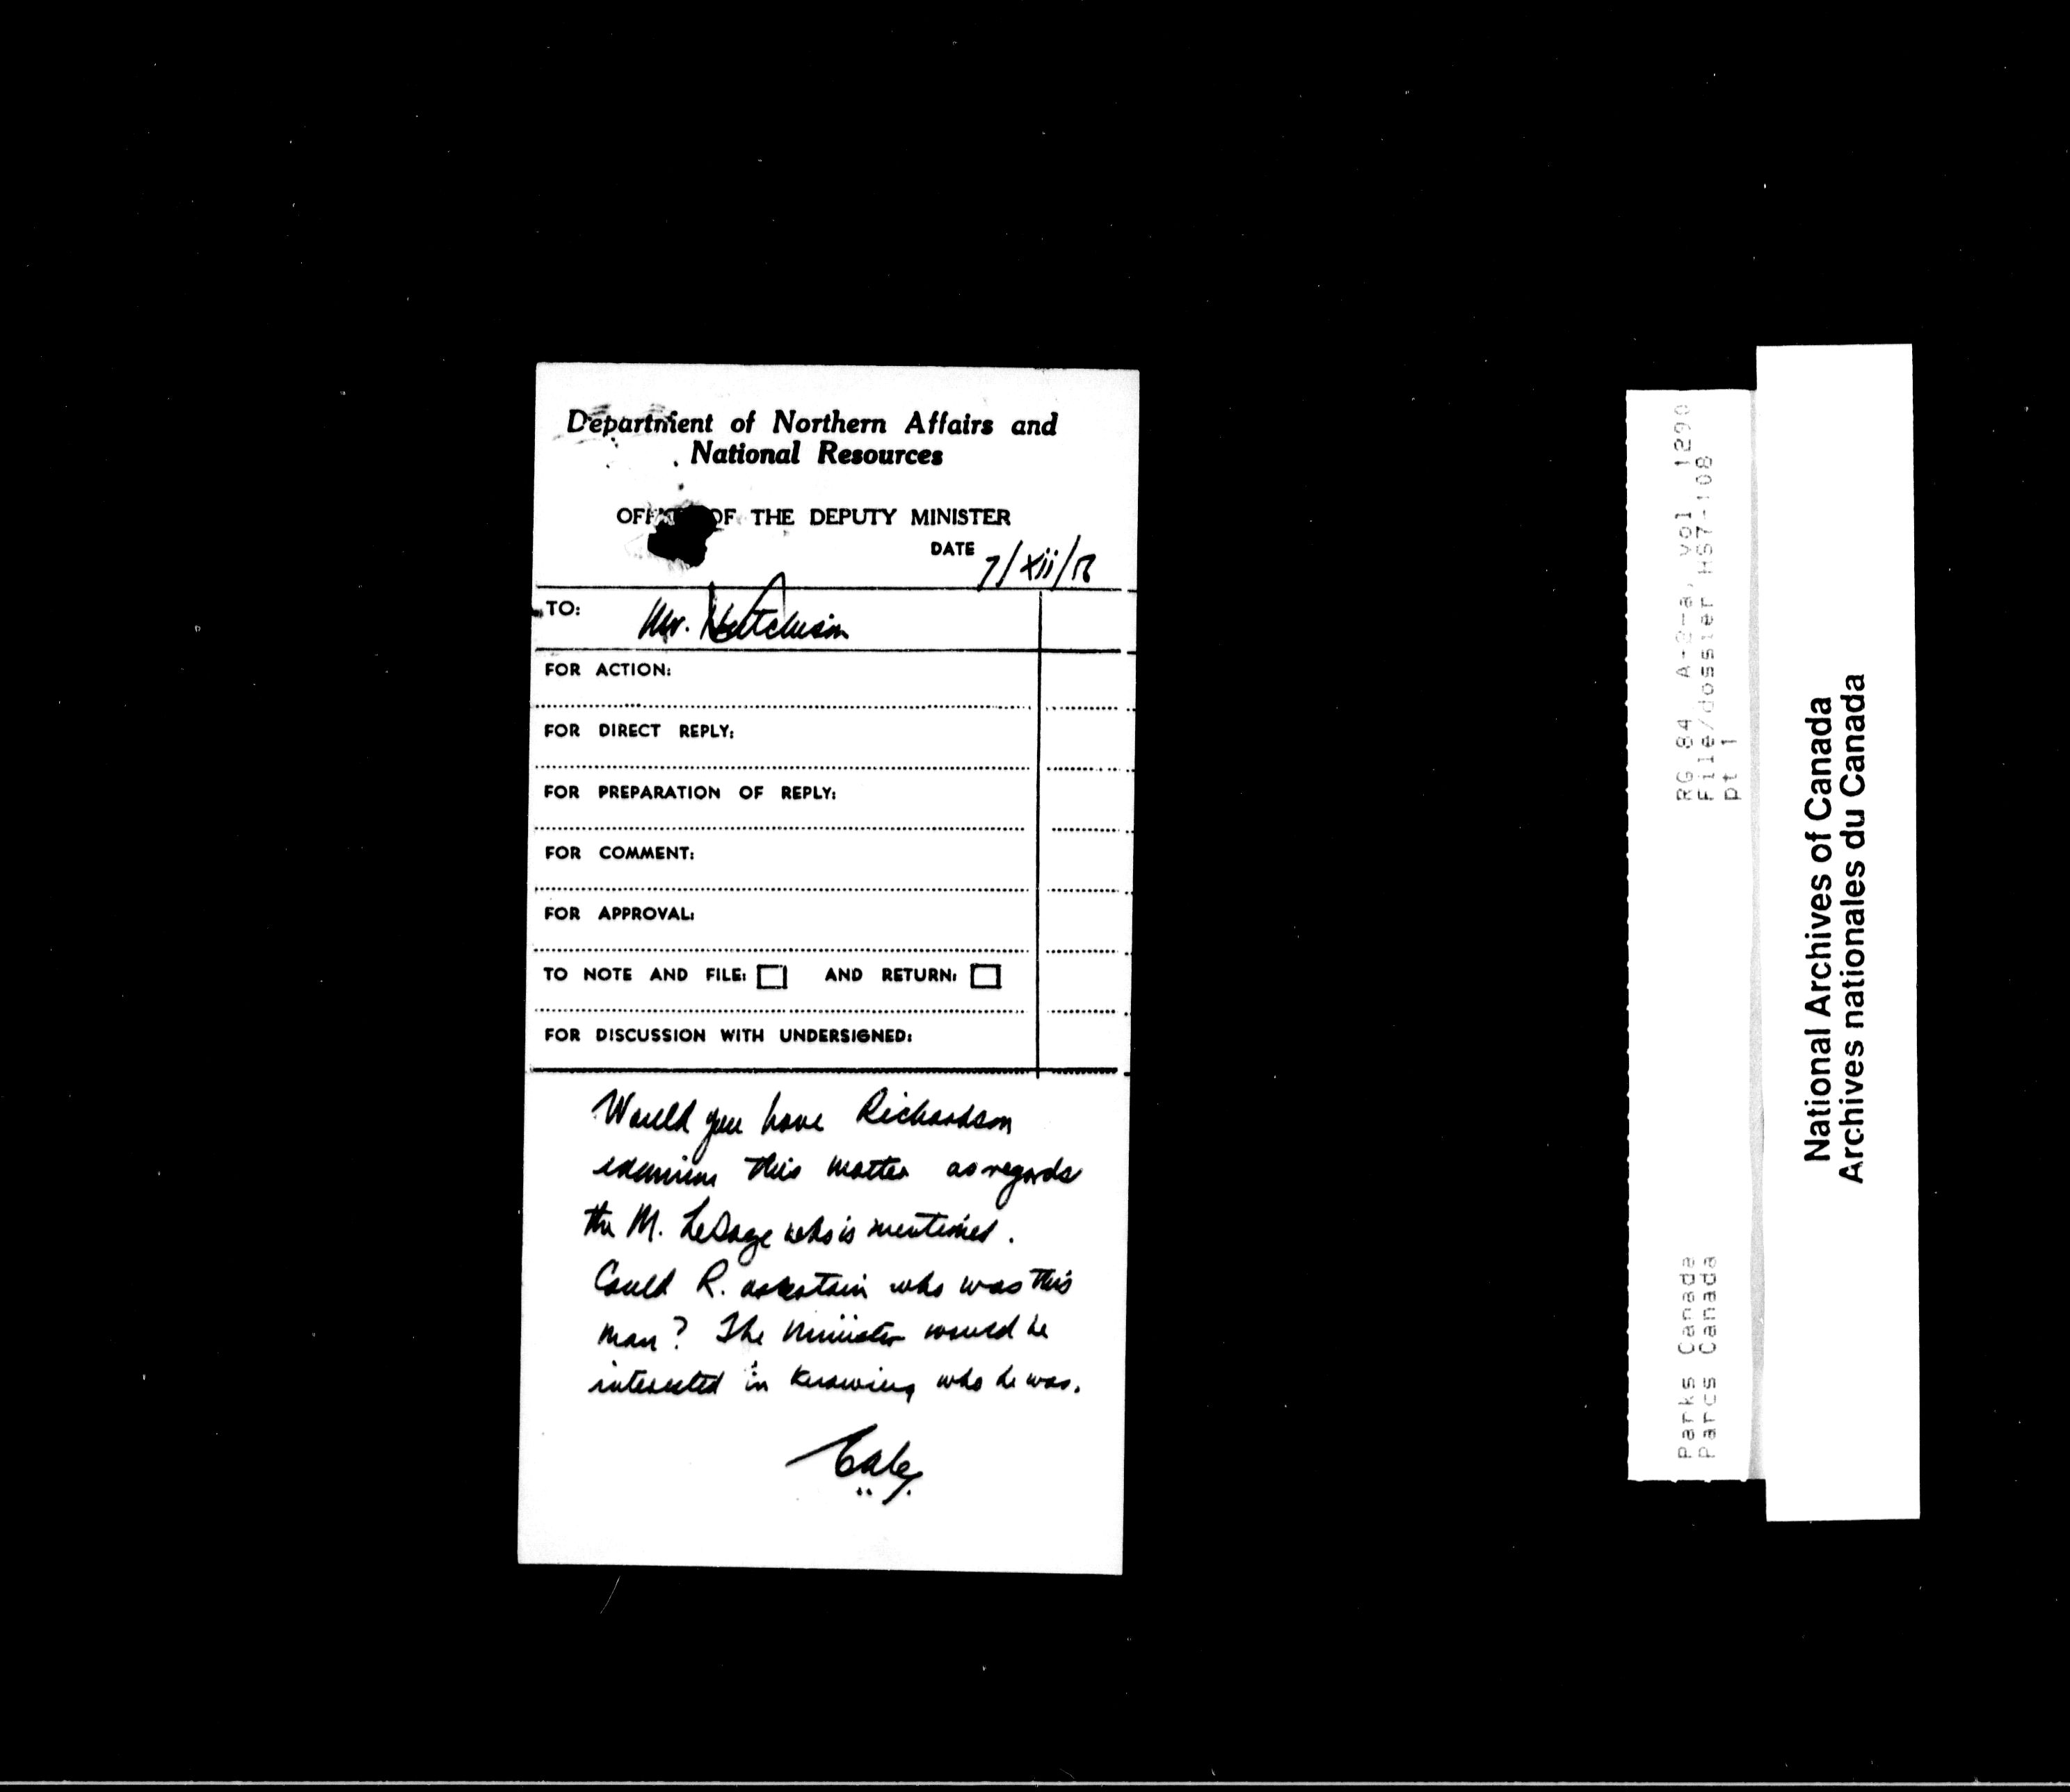 Department of Northern Affairs and
National Resources
OF THE DEPUTY MINISTER
DATE 7/xii/
TO: Mr. Hutchison
FOR ACTION:
FOR DIRECT REPLY:
FOR PREPARATION OF REPLY:
FOR COMMENT:
FOR APPROVAL:
TO NOTE AND FILE: AND RETURN:
FOR DISCUSSION WITH UNDERSIGNED:
Would you have Richardson
examine this matter as regards
the M. LeSage who is mentioned.
Could R. ascertain who was this
man? The Minister would be
interested in knowing who he was.
RG 84 A-2-a, vol 1290
File/dossier HS7-108
pt 1
Parks Canada
Parcs Canada
National Archives of Canada
Archives nationales du Canada